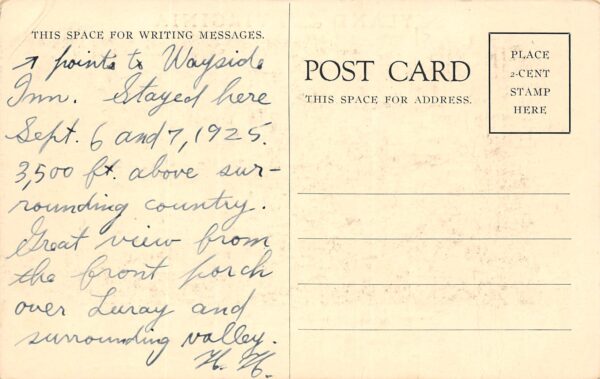 THIS SPACE FOR WRITING MESSAGES.
↗ points to Wayside
Inn. Stayed here
Sept. 6 and 7, 1925.
3,500 ft. above sur-
rounding country.
Great view from
the front porch
over Luray and
surrounding valley.
H. H.
POST CARD
THIS SPACE FOR ADDRESS.
PLACE
2-CENT
STAMP
HERE